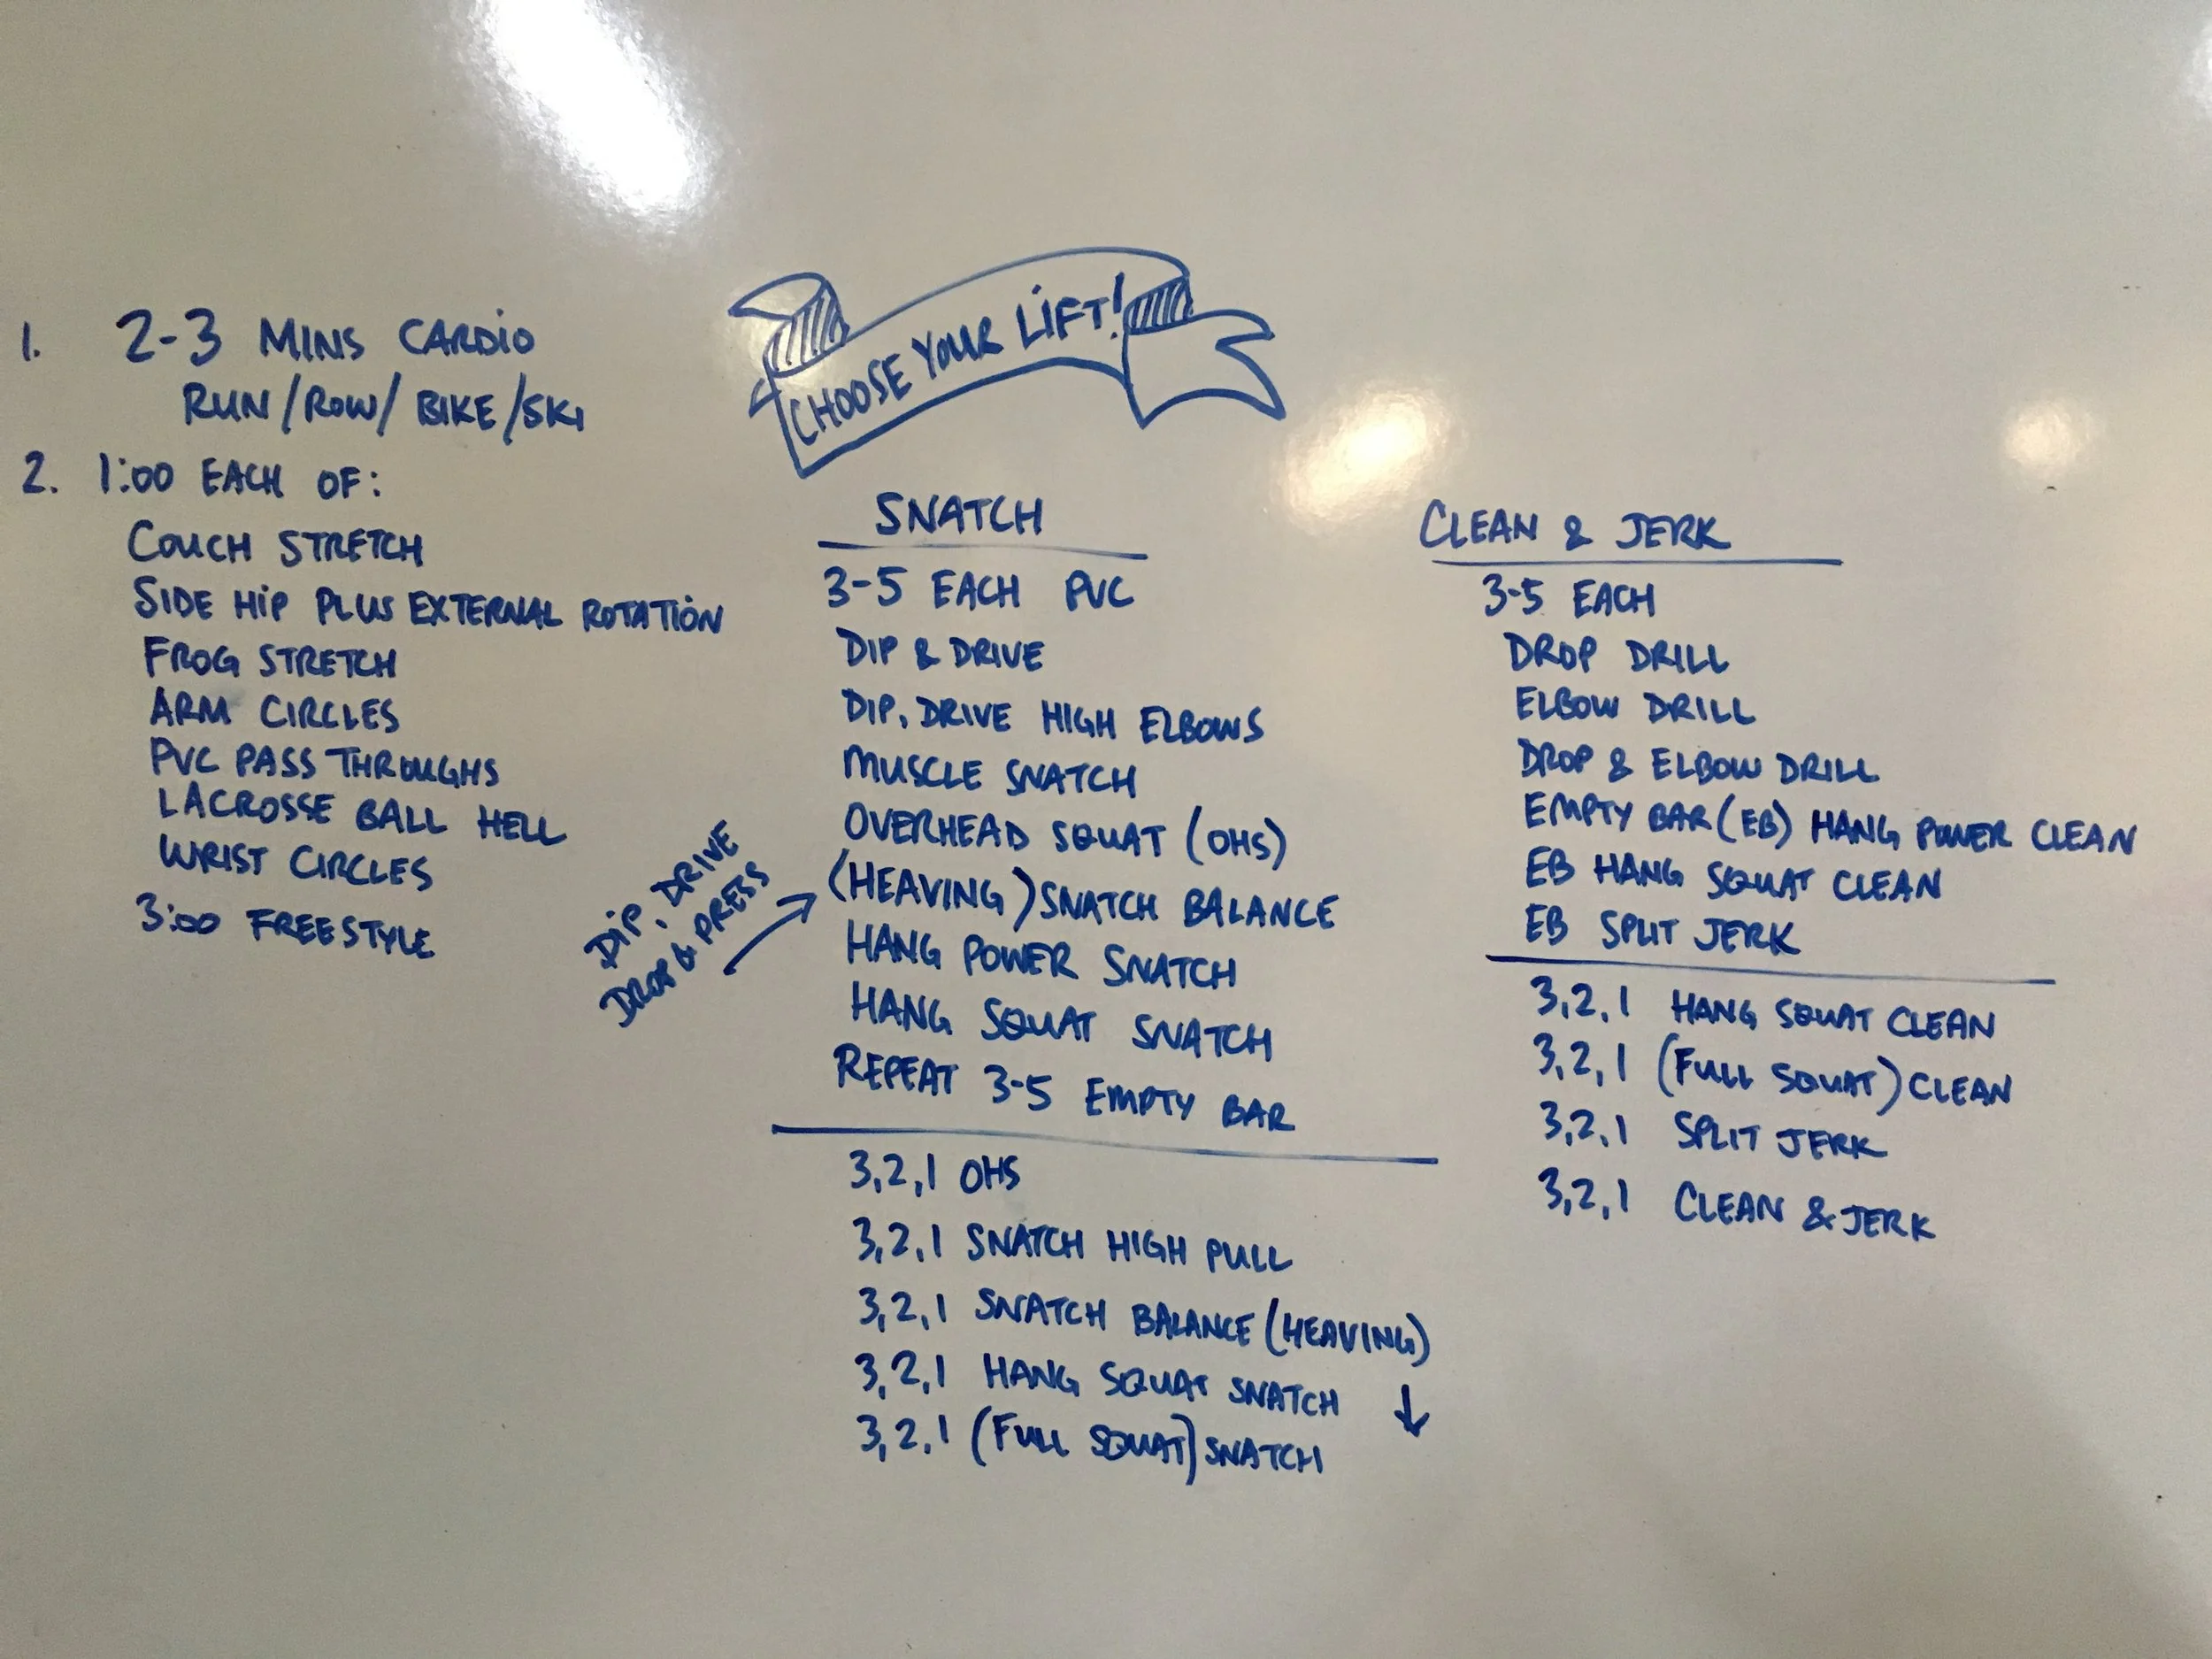 1. 2-3 MINS CARDIO
RUN/ROW/BIKE/SKI
2. 1:00 EACH OF:
COUCH STRETCH
SIDE HIP PLUS EXTERNAL ROTATION
FROG STRETCH
ARM CIRCLES
PVC PASS THROUGHS
LACROSSE BALL HELL
WRIST CIRCLES
3:00 FREESTYLE
CHOOSE YOUR LIFT!
SNATCH
3-5 EACH PVC
DIP & DRIVE
DIP, DRIVE HIGH ELBOWS
MUSCLE SNATCH
OVERHEAD SQUAT (OHS)
(HEAVING) SNATCH BALANCE
DIP, DRIVE
DROP & PRESS
HANG POWER SNATCH
HANG SQUAT SNATCH
REPEAT 3-5 EMPTY BAR
3,2,1 OHS
3,2,1 SNATCH HIGH PULL
3,2,1 SNATCH BALANCE (HEAVING)
3,2,1 HANG SQUAT SNATCH ↓
3,2,1 (FULL SQUAT) SNATCH
CLEAN & JERK
3-5 EACH
DROP DRILL
ELBOW DRILL
DROP & ELBOW DRILL
EMPTY BAR (EB) HANG POWER CLEAN
EB HANG SQUAT CLEAN
EB SPLIT JERK
3,2,1 HANG SQUAT CLEAN
3,2,1 (FULL SQUAT) CLEAN
3,2,1 SPLIT JERK
3,2,1 CLEAN & JERK